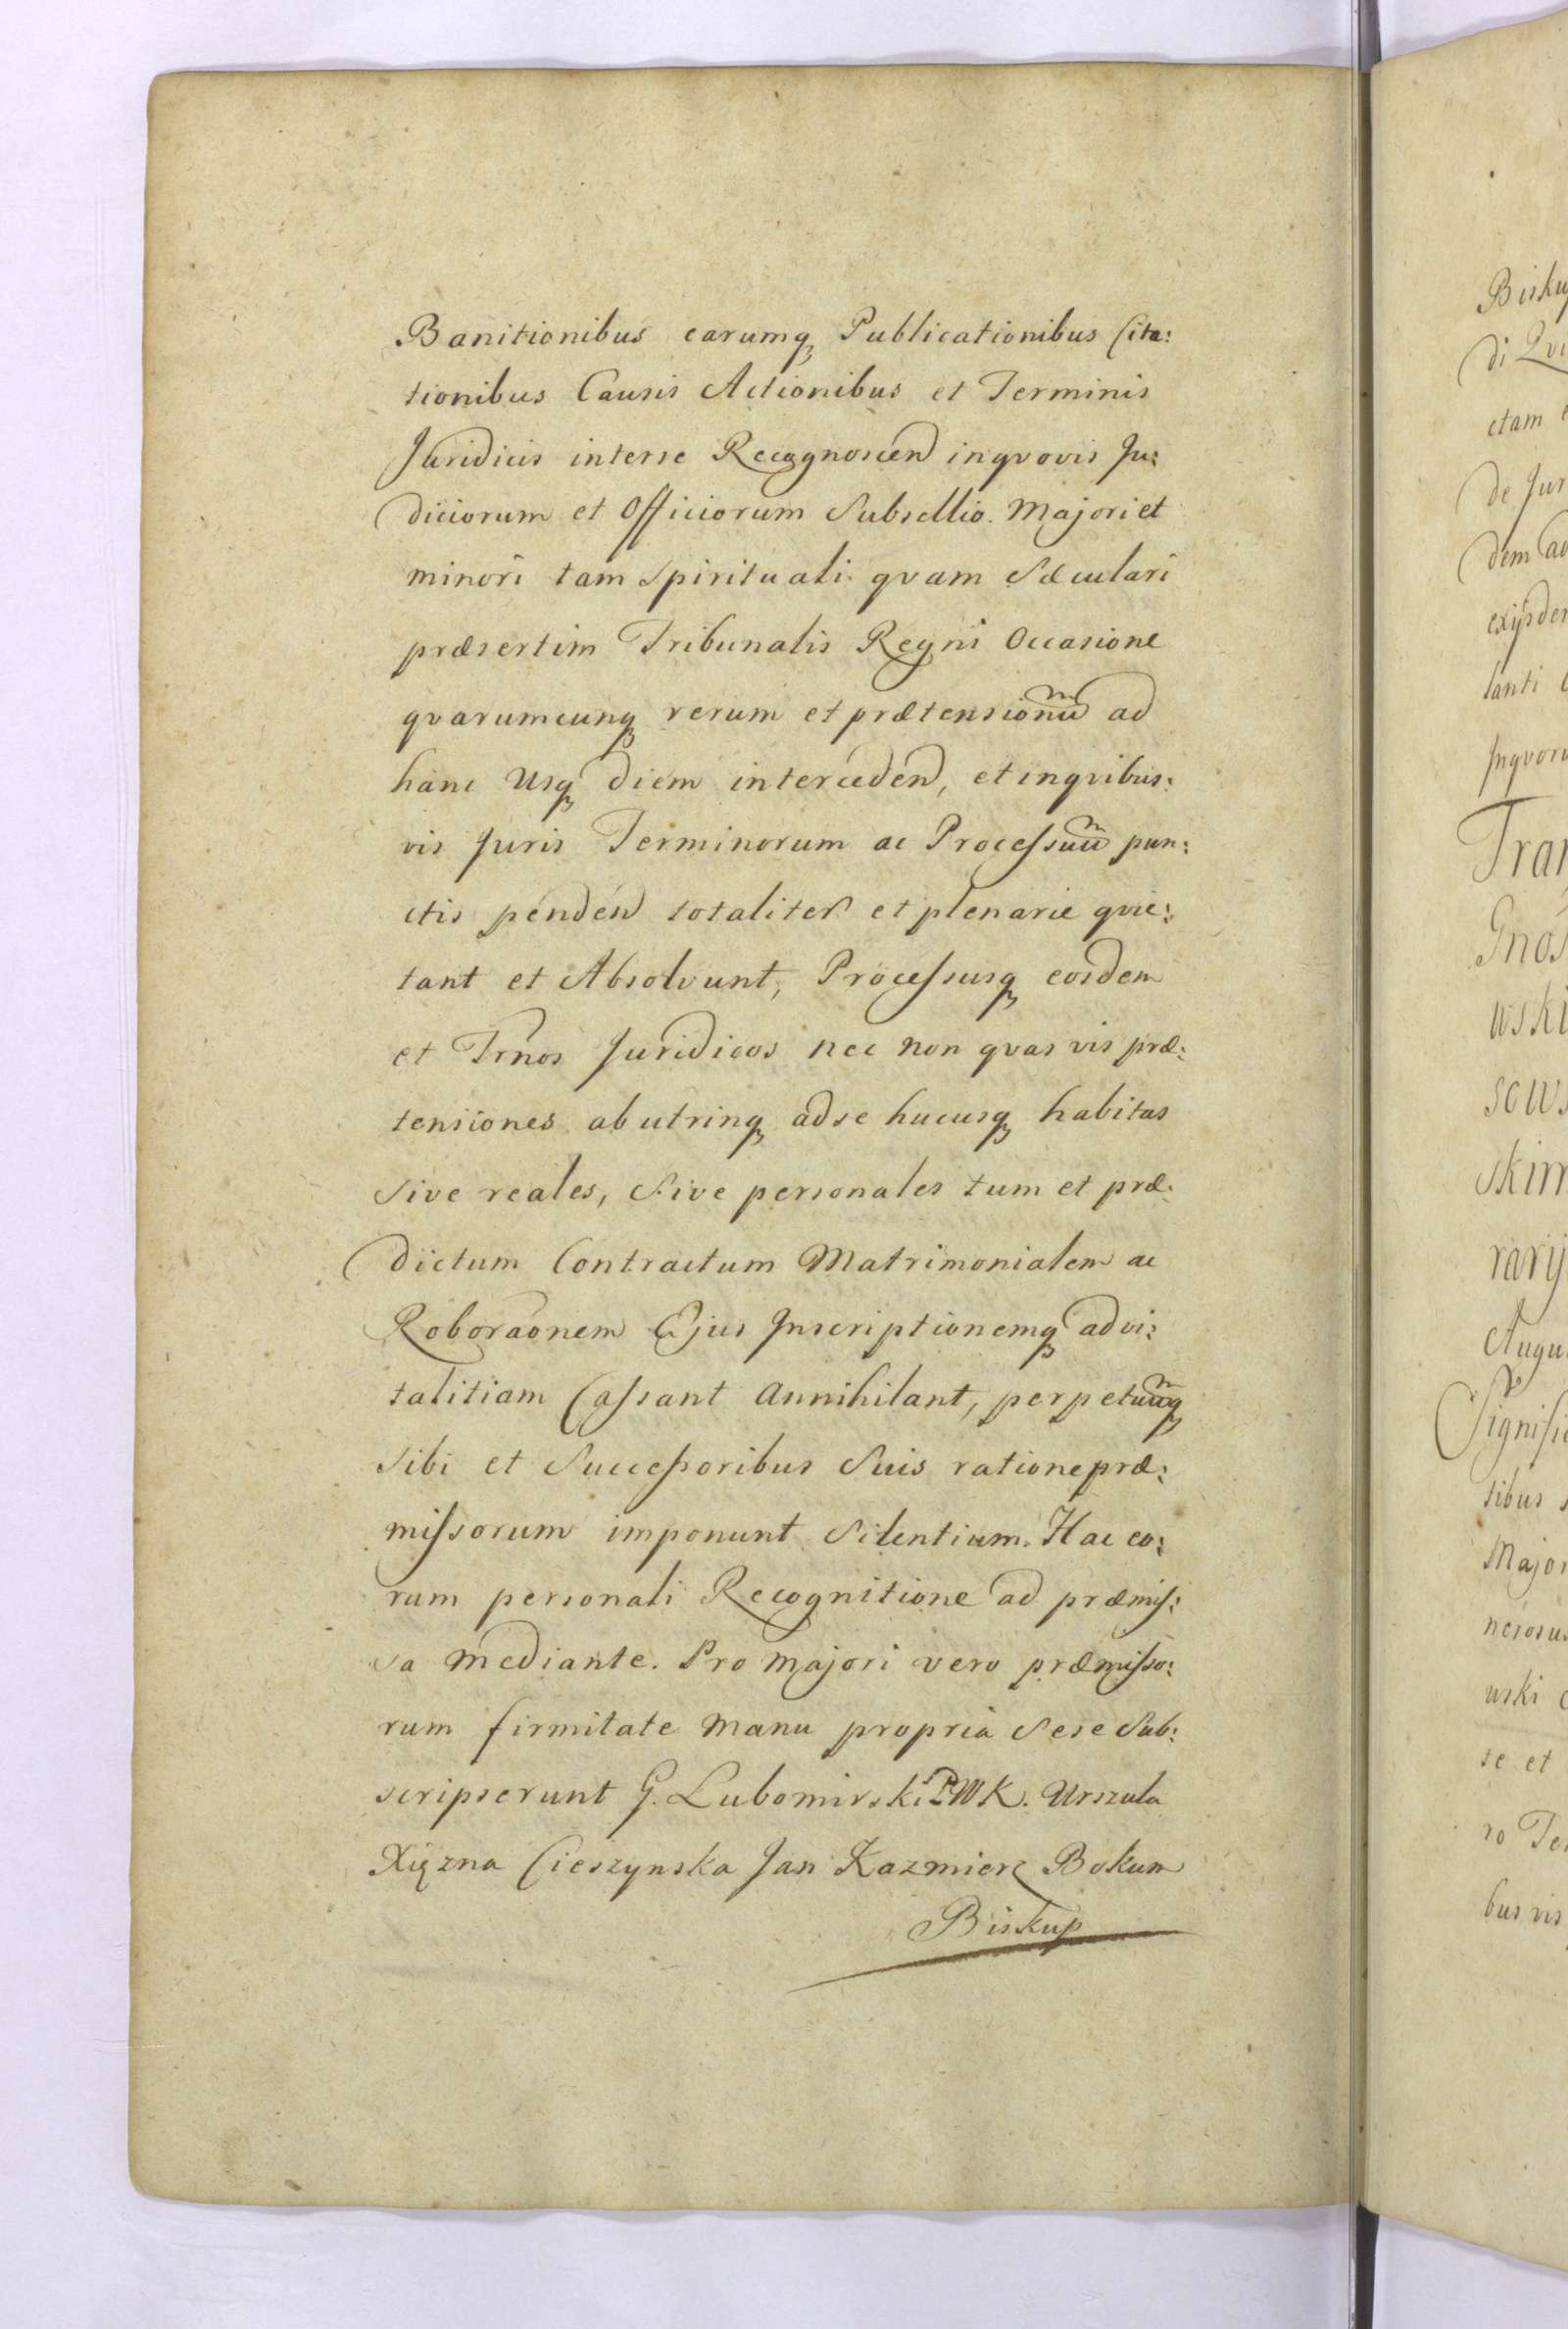 Banitionibus earumq, Publicationibus Cita:
tionibus Causis Actionibus et Terminis
Juridicis interse Recognoscen inqvovis Ju:
diciorum et Officiorum Subsellio. Majori et
minori tam Spirituali qvam Sæculari
præsertim Tribunalis Regni Occasione
qvarumcunq rerum et prætensionũ ad
hanc Usq diem interceden, et inqvibus:
vis Juris Terminorum ac Processuũ pun:
ctis penden totaliter et plenarie qvie:
tant et Absolvunt, Processusq eosdem
et Trnos Juridicos nec non qvas vis præ:
tensiones ab utrinq adse hucusq habitas
Sive reales, Sive personales tum et præ:
dictum Contractum Matrimonialem ac
Roboraonem Ejus Inscriptionemq advi:
talitiam Cassant Annihilant, perpetuũq
Sibi et Successoribus Suis ratione præ:
missorum imponunt Silentium. Hac eo:
rum personali Recognitione ad præmis:
sa mediante. Pro majori vero præmisso:
rum firmitate manu propria Sese Sub:
scripserunt G. Lubomirski PWK. Urszula
Xięzna Cieszynska Jan Kazmierz Bokum
Biskup
Bisku
di
ctam
de Jur
dem
exijsdem
lanti
Inqvor
Tran
Gnos
wski
scws
skim
rarij
Augu
Signific
tibus
Major
nerosus
wski
se et
ro Te
bus vis